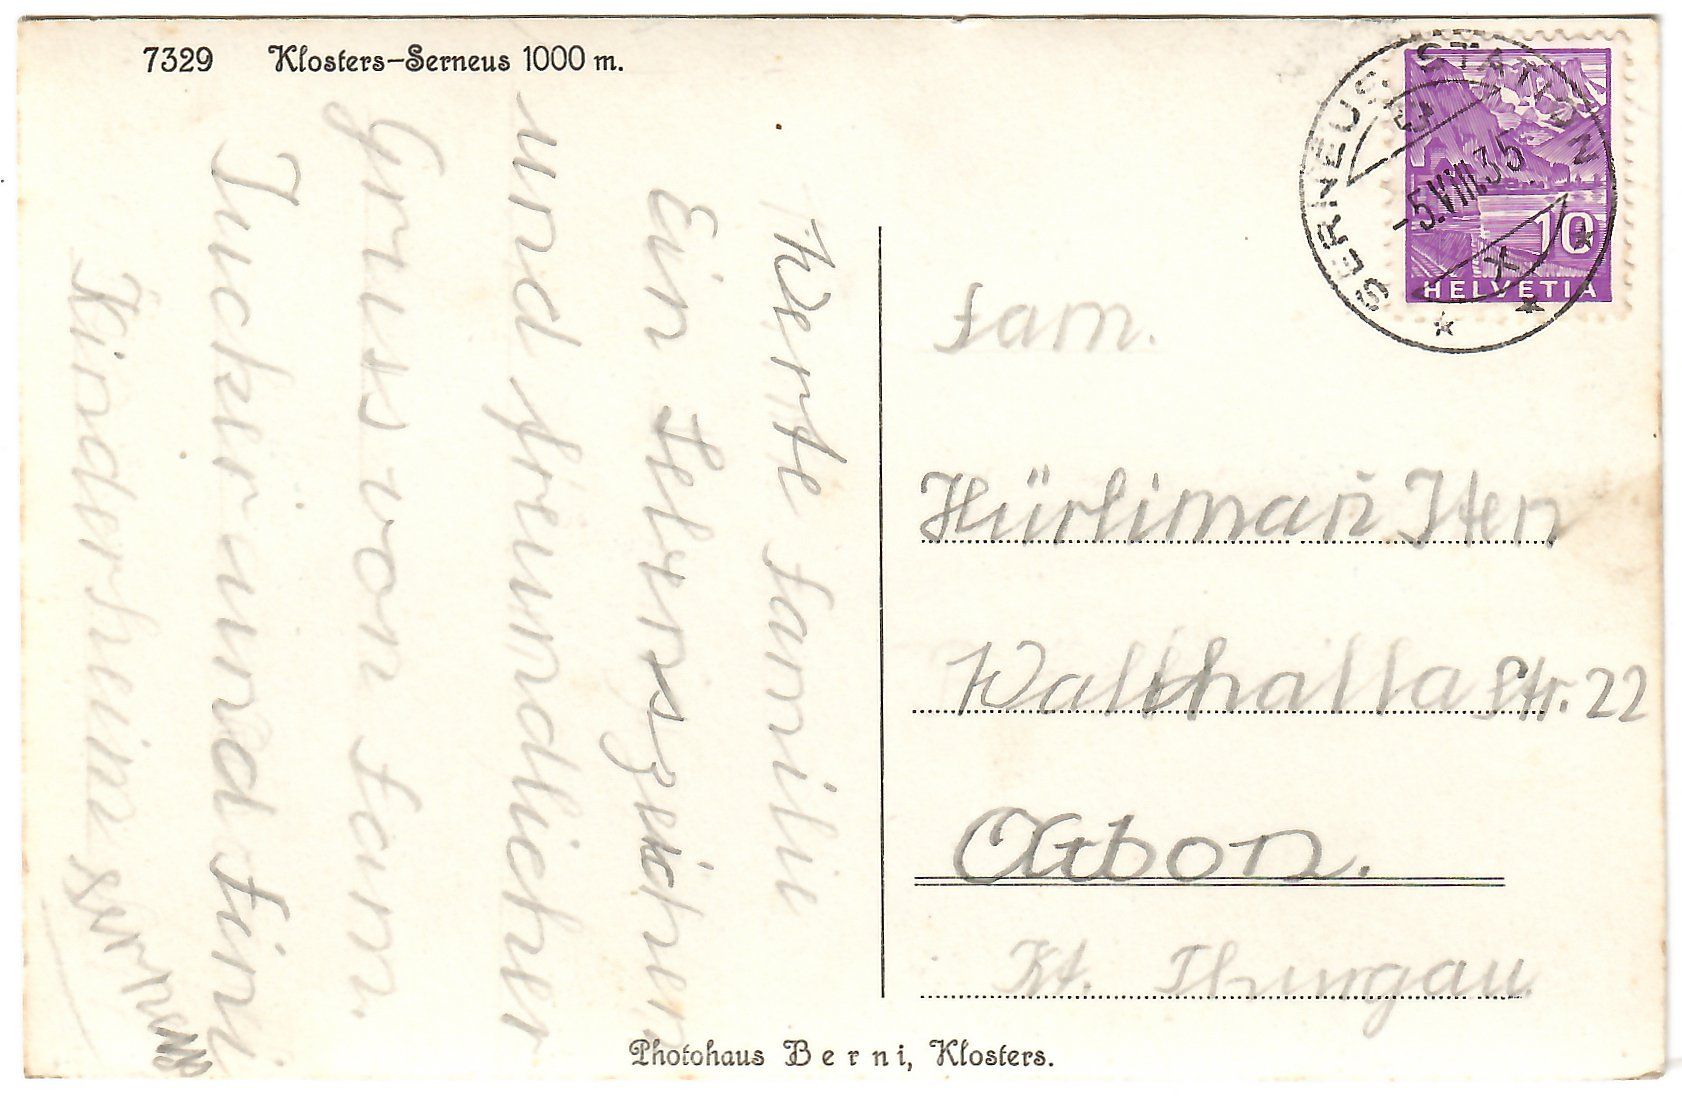 7329 Klosters-Serneus 1000 m.
SERNEUS STATION
-5.VIII.35
10
HELVETIA
Werte Familie
Ein Lebenszeichen
und freundlicher
Gruss von Fam.
Jucker und Fini
Kinderheim Serneus
Fam.
Hürliman̄ Iten
Wallhalla Str. 22
Arbon.
Kt. Thurgau
Photohaus Berni, Klosters.